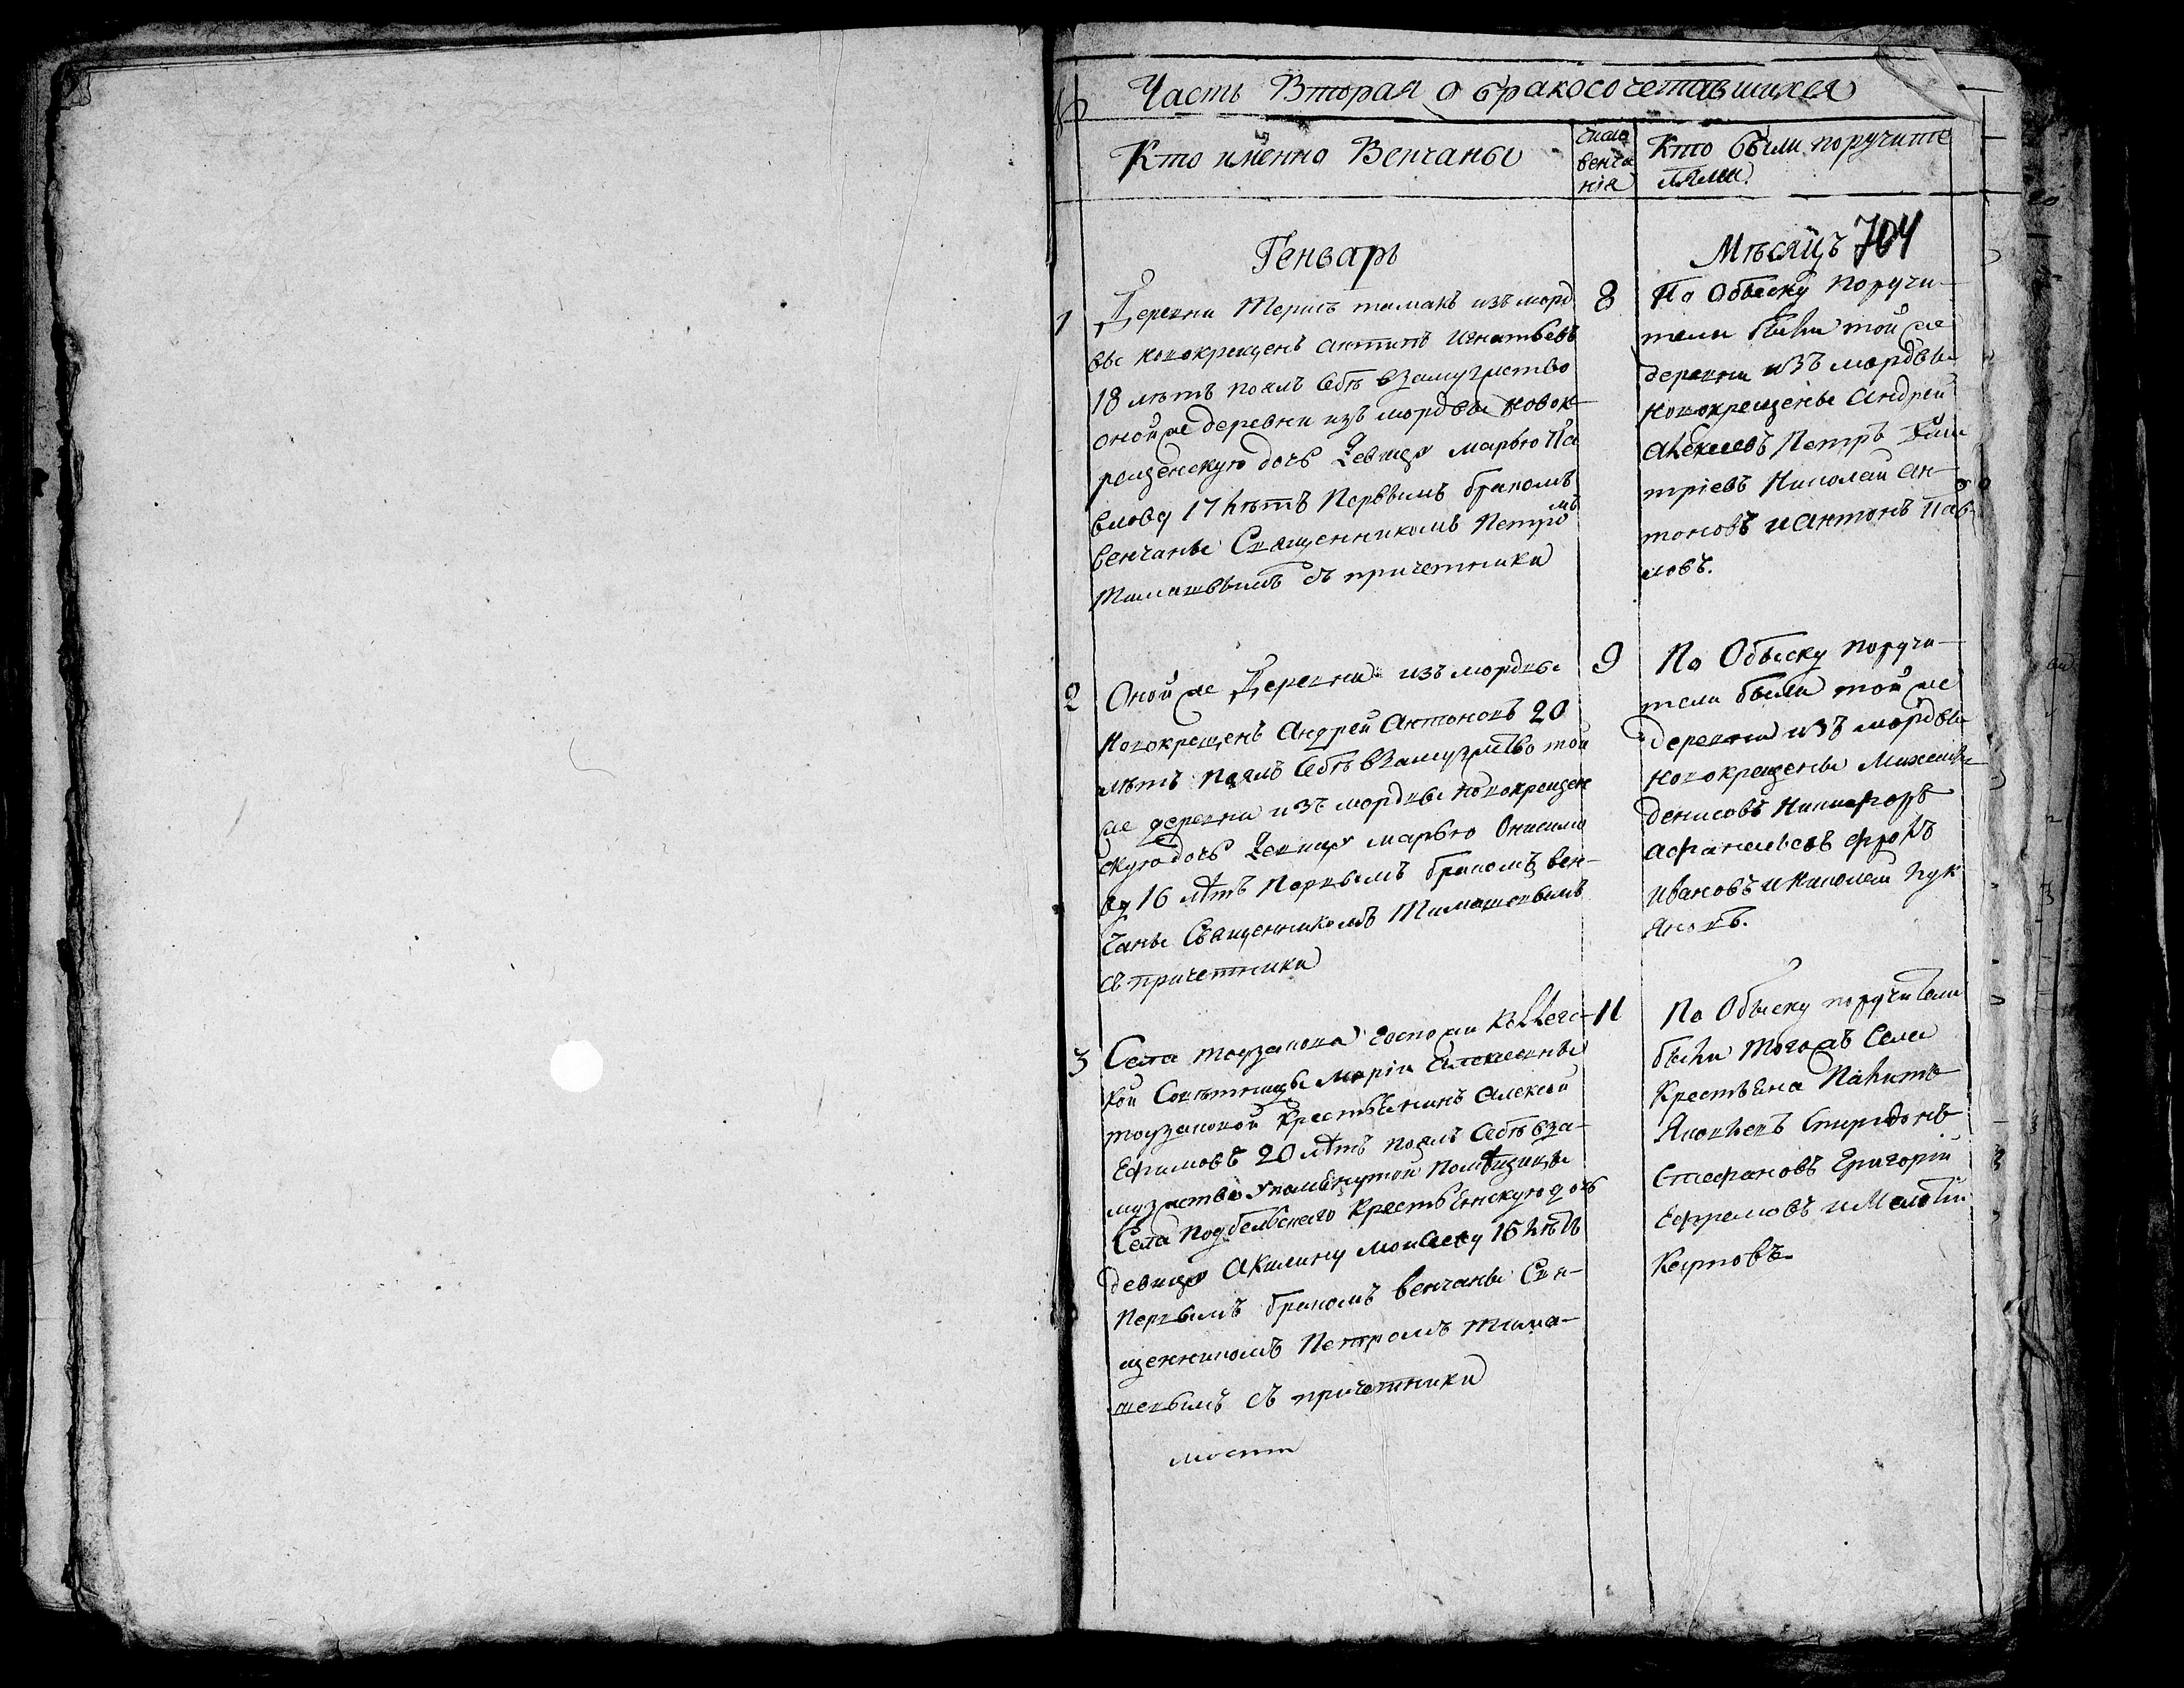 Часть Вторая о бракосочетавшихся
№
Кто имѣнно Венчаны
число
венча
нїя
Кто были поручите
лями
Генварь
Мѣсяцъ 704
1
Деревни Терисъ тамакъ изъ морд
вы новокрещенъ антипъ игнатьевъ
18 лѣтъ поялъ себѣ взамужство
оной же деревни изъ мордвы новок
рещенскую дочь девицу марью Па
влову 17 лѣтъ Первымъ бракомъ
венчаны Священникомъ Петромъ
Тимашевымъ съ причетники
8
По обыску поручи
тели были той же
деревни изъ мордвы
новокрещены андрей
алексеевъ Петръ
Николай ан
тоновъ и антонъ Пав
ловъ.
2
Оной же Деревни изъ мордвы
новокрещенъ андрей антоновъ 20
лѣтъ поялъ себѣ взамужство той
же деревни изъ мордвы новокрещен
скую дочь девицу марью Онисимо
ву 16 лѣтъ Первымъ бракомъ вен
чаны Священникомъ Тимашевымъ
съ причетники
9
По Обыску поручи
тели были той же
деревни изъ мордвы
новокрещены Михаила
денисовъ Никифоръ
афанасьевъ фролъ
ивановъ и николай Лук
яновъ.
3
Села тоузакова госпожи Коллегс
кой Советницы Марїи Алексеевны
тоузаковой крестьянинъ алексей
Ефимовъ 20 лѣтъ поялъ себѣ вза
мужство упомянутой помѣщицы
Села подбельскаго крестьянскую дочь
девицу акилину моисееву 15 лѣтъ
Первымъ бракомъ венчаны Свя
щенникомъ Петромъ тима
шевымъ съ причетники
11
По Обыску поручители
были тогожъ Села
крестьяна
Яковлевъ Спиридонъ
Стефановъ Григорїй
Ефремовъ и
Карповъ